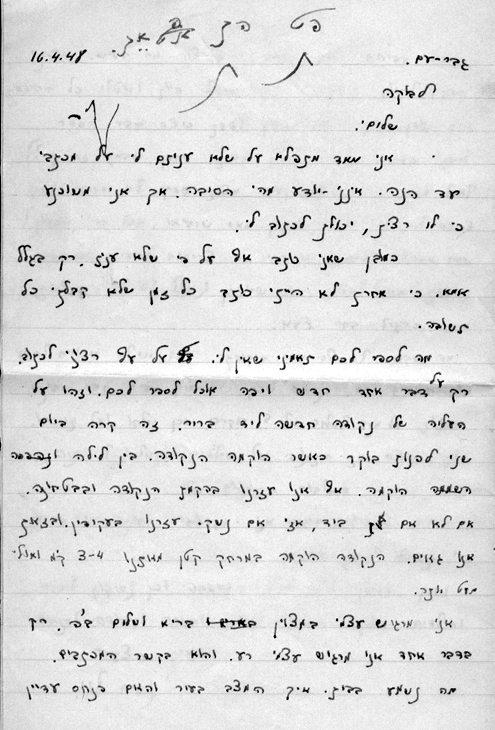 16.4.48
גבר-עם.
לבוקה
שלום!
אני מאד מתפלא על שלא עניתם לי על מכתבי
עד הנה. אינני יודע מהי הסיבה. אך אני משוכנע
כי לו רצית, יכולת לכתוב לי.
כמובן שאני כותב אף על פי שלא ענית. רק בגלל
אמא. כי אחרת לא הייתי כותב כל זמן שלא קבלתי כל
תשובה.
מה לספר לכם תאמיני שאין לי. על אף רצוני לכתוב.
רק על דבר אחד חדש ויפה אוכל לספר לכם. וזהו על
העליה של נקודה חדשה ליד ברור. זה קרה ביום
שני לפנות בוקר כאשר הוקמה הנקודה. בין לילה
הוקמה. אף אנו עזרנו בהקמת הנקודה ובבטחונה.
אם לא אם ביד, אזי אם נשק. עזרנו בעקיפין. ובזאת
אנו גאים. הנקודה הוקמה במרחק קטן מאתנו 3-4 ק״מ ואולי
מעט יותר.
אני מרגיש עצמי במצוין בריא ושלום ב״ה. רק
בדבר אחד אני מרגיש עצמי רע. והוא בקשר המכתבים.
מה נשמע בבית. איך המצב בעיר והאם פנחס עדיין